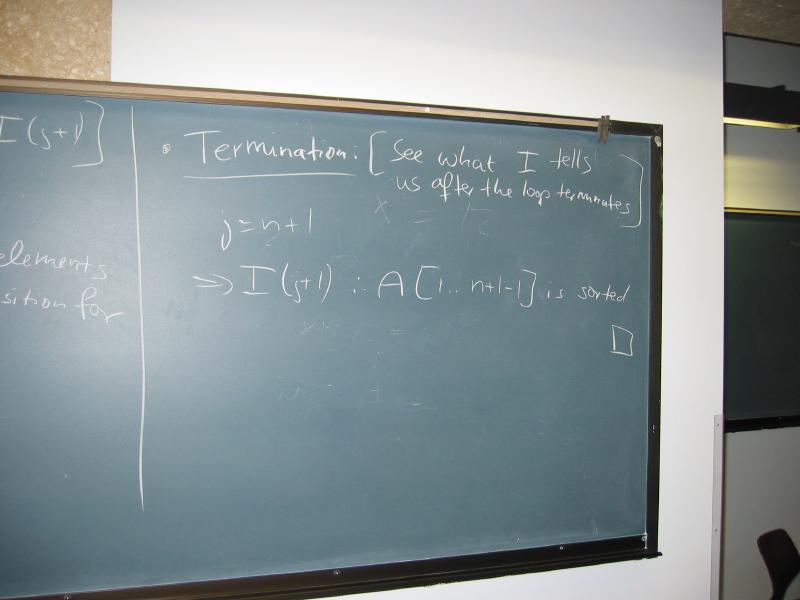 I(j+1)]
elements
sition for
• Termination: [See what I tells
us after the loop terminates]
j=n+1
⇒ I(j+1) : A[1.. n+1-1] is sorted
□